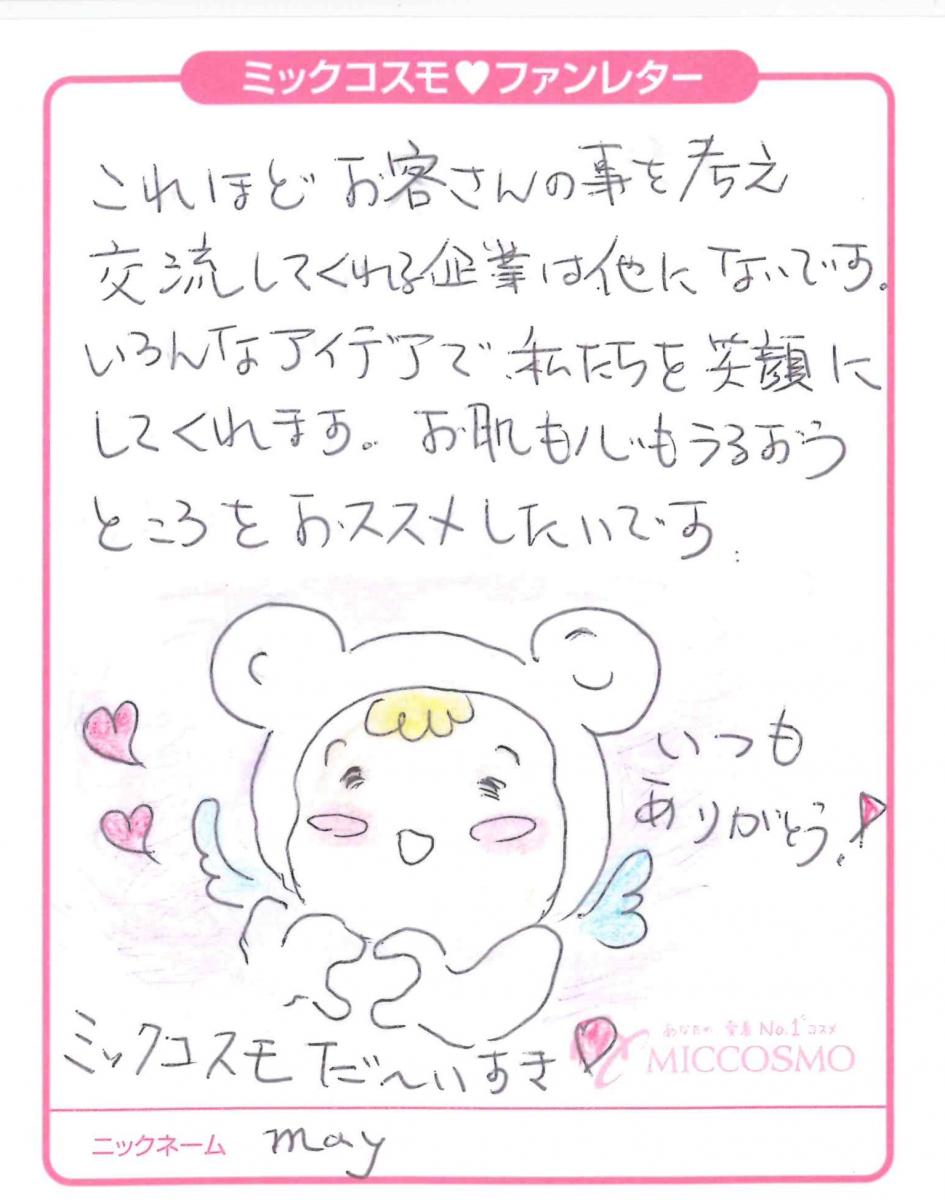 ミックコスモ♥ファンレター
これほどお客さんの事を考え
交流してくれる企業は他にないです。
いろんなアイデアで私たちを笑顔に
してくれます。お肌も心もうるおう
ところをおススメしたいです
いつも
ありがとう!
ミックコスモだ〜いすき!
あなたの愛着No.1コスメ
MICCOSMO
ニックネーム may